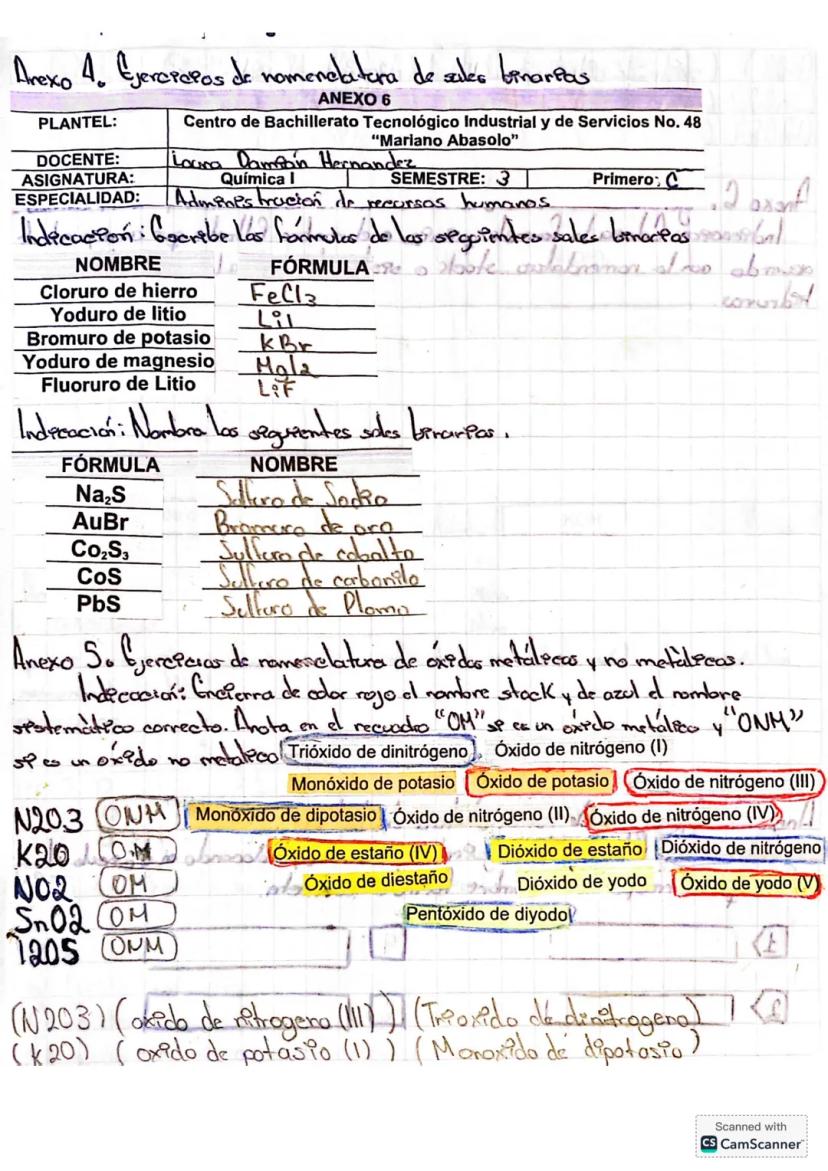 Anexo 4. Ejercicios de nomenclatura de sales binarias
ANEXO 6
PLANTEL: Centro de Bachillerato Tecnológico Industrial y de Servicios No. 48
"Mariano Abasolo"
DOCENTE: Laura Damián Hernandez
ASIGNATURA: Química I SEMESTRE: 3 Primero: C
ESPECIALIDAD: Administración de recursos humanos
Indicación: Escribe las fórmulas de las siguientes sales binarias
NOMBRE FÓRMULA
Cloruro de hierro FeCl3
Yoduro de litio LiI
Bromuro de potasio KBr
Yoduro de magnesio MgI2
Fluoruro de Litio LiF
Indicación: Nombra las siguientes sales binarias.
FÓRMULA NOMBRE
Na₂S Sulfuro de Sodio
AuBr Bromuro de oro
Co₂S₃ Sulfuro de cobalto
CoS Sulfuro de carbonilo
PbS Sulfuro de Plomo
Anexo 5. Ejercicios de nomenclatura de óxidos metálicos y no metálicos.
Indicación: Encierra de color rojo el nombre stock y de azul el nombre
sistemático correcto. Anota en el recuadro "OM" si es un óxido metálico y "ONM"
si es un oxido no metalico Trióxido de dinitrógeno Óxido de nitrógeno (I)
Monóxido de potasio Óxido de potasio Óxido de nitrógeno (III)
N2O3 ONM Monóxido de dipotasio Óxido de nitrógeno (II) Óxido de nitrógeno (IV)
K2O OM Óxido de estaño (IV) Dióxido de estaño Dióxido de nitrógeno
NO2 OM Óxido de diestaño Dióxido de yodo Óxido de yodo (V)
SnO2 OM Pentóxido de diyodo
I2O5 ONM
(N2O3) (oxido de nitrogeno (III)) (Trioxido de dinitrogeno)
(K2O) (oxido de potasio (1)) (Monoxido de dipotasio)
Scanned with
CS CamScanner